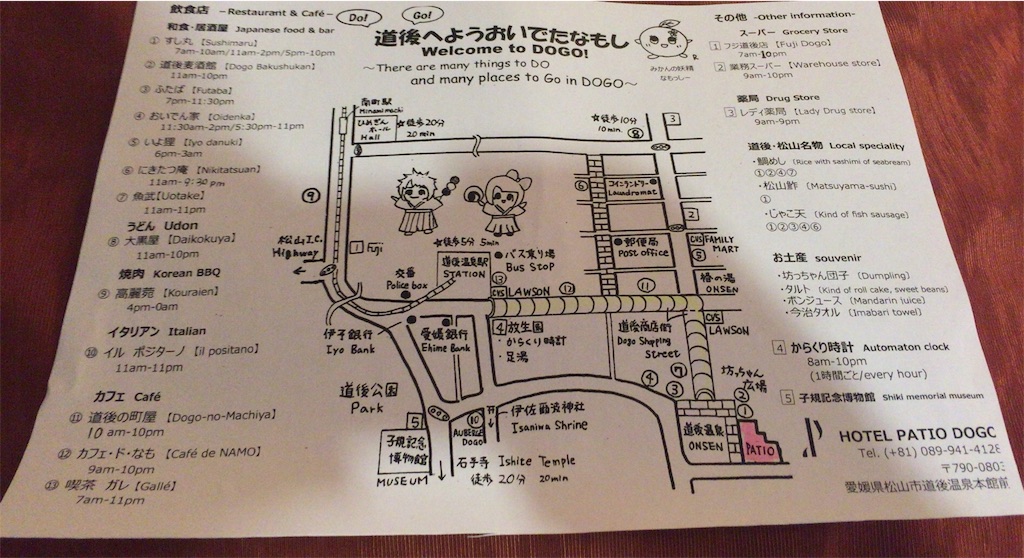 飲食店 –Restaurant & Café–
和食・居酒屋 Japanese food & bar
① すし丸 【Sushimaru】
7am-10am/11am-2pm/5pm-10pm
② 道後麦酒館 【Dogo Bakushukan】
11am-10pm
③ ふたば 【Futaba】
7pm-11:30pm
④ おいでん家 【Oidenka】
11:30am-2pm/5:30pm-11pm
⑤ いよ狸 【Iyo danuki】
6pm-3am
⑥ にきたつ庵 【Nikitatsuan】
11am-9:30pm
⑦ 魚武【Uotake】
11am-11pm
うどん Udon
⑧ 大黒屋 【Daikokuya】
11am-10pm
焼肉 Korean BBQ
⑨ 高麗苑 【Kouraien】
4pm-0am
イタリアン Italian
⑩ イル ポジターノ 【il positano】
11am-11pm
カフェ Café
⑪ 道後の町屋 【Dogo-no-Machiya】
10am-10pm
⑫ カフェ・ド・なも 【Café de NAMO】
9am-10pm
⑬ 喫茶 ガレ 【Gallé】
7am-11pm
Do!
Go!
道後へようおいでたなもし
Welcome to DOGO!
～There are many things to DO
and many places to Go in DOGO～
みかんの妖精
なもっしー
南町駅
Minamimachi
ひめぎん
ホール
Hall
☆徒歩20分
20 min
☆徒歩10分
10 min.
⑧
3
⑨
⑥
コインランドリー
Laundromat
2
松山I.C.
Highway
1 Fuji
☆徒歩5分 5min
道後温泉駅
STATION
バス乗り場
Bus Stop
郵便局
Post office
CVS FAMILY
MART
⑤
椿の湯
ONSEN
交番
Police box
⑬
CVS LAWSON
⑫
⑪
伊予銀行
Iyo Bank
愛媛銀行
Ehime Bank
4 放生園
・からくり時計
・足湯
道後商店街
Dogo Shopping
Street
CVS
LAWSON
坊っちゃん
広場
④ ⑦
③
②
①
道後公園
Park
5
子規記念
博物館
MUSEUM
⑩
AUBERGE
DOGO
伊佐爾波神社
Isaniwa Shrine
石手寺 Ishite Temple
徒歩20分 20min
道後温泉
ONSEN
PATIO
その他 -Other information-
スーパー Grocery Store
1 フジ道後店 【Fuji Dogo】
7am-10pm
2 業務スーパー 【Warehouse store】
9am-10pm
薬局 Drug Store
3 レディ薬局 【Lady Drug store】
9am-9pm
道後・松山名物 Local speciality
・鯛めし （Rice with sashimi of seabream）
①②④⑦
・松山鮓 （Matsuyama-sushi）
①
・じゃこ天 （Kind of fish sausage）
①②③④⑥
お土産 souvenir
・坊っちゃん団子 （Dumpling）
・タルト （Kind of roll cake, sweet beans）
・ポンジュース （Mandarin juice）
・今治タオル （Imabari towel）
4 からくり時計 Automaton clock
8am-10pm
(1時間ごと/every hour)
5 子規記念博物館 Shiki memorial museum
HOTEL PATIO DOGO
Tel. (+81) 089-941-412
〒790-080
愛媛県松山市道後温泉本館前